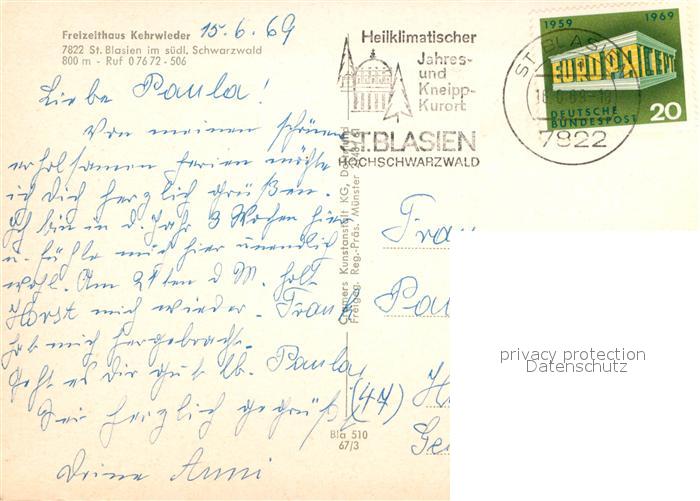 Freizeithaus Kehrwieder
7822 St. Blasien im südl. Schwarzwald
800 m - Ruf 0 76 72 - 506
15.6.69
Liebe Paula!
Von meinen schönen
erholsamen Ferien möchte
ich dich herzlich grüßen.
Ich bin in d. Jahr 3 Wochen hier
u. fühle mich hier unendlich
wohl. Am 21ten d M. holt
Horst mich wieder. Franz
hat mich hergebracht.
Geht es dir gut lb. Paula,
Sei herzlich gegrüßt
Deine Anni
Heilklimatischer
Jahres-
und
Kneipp-
Kurort
ST.BLASIEN
HOCHSCHWARZWALD
ST. BLASIEN
7822
1959 1969
EUROPA CEPT
DEUTSCHE
BUNDESPOST
20
Cramers Kunstanstalt KG, Dortmund
Freigeg. Reg.-Präs. Münster
Bla 510
67/3
Frau
Pau
(47) H
Ge
privacy protection
Datenschutz